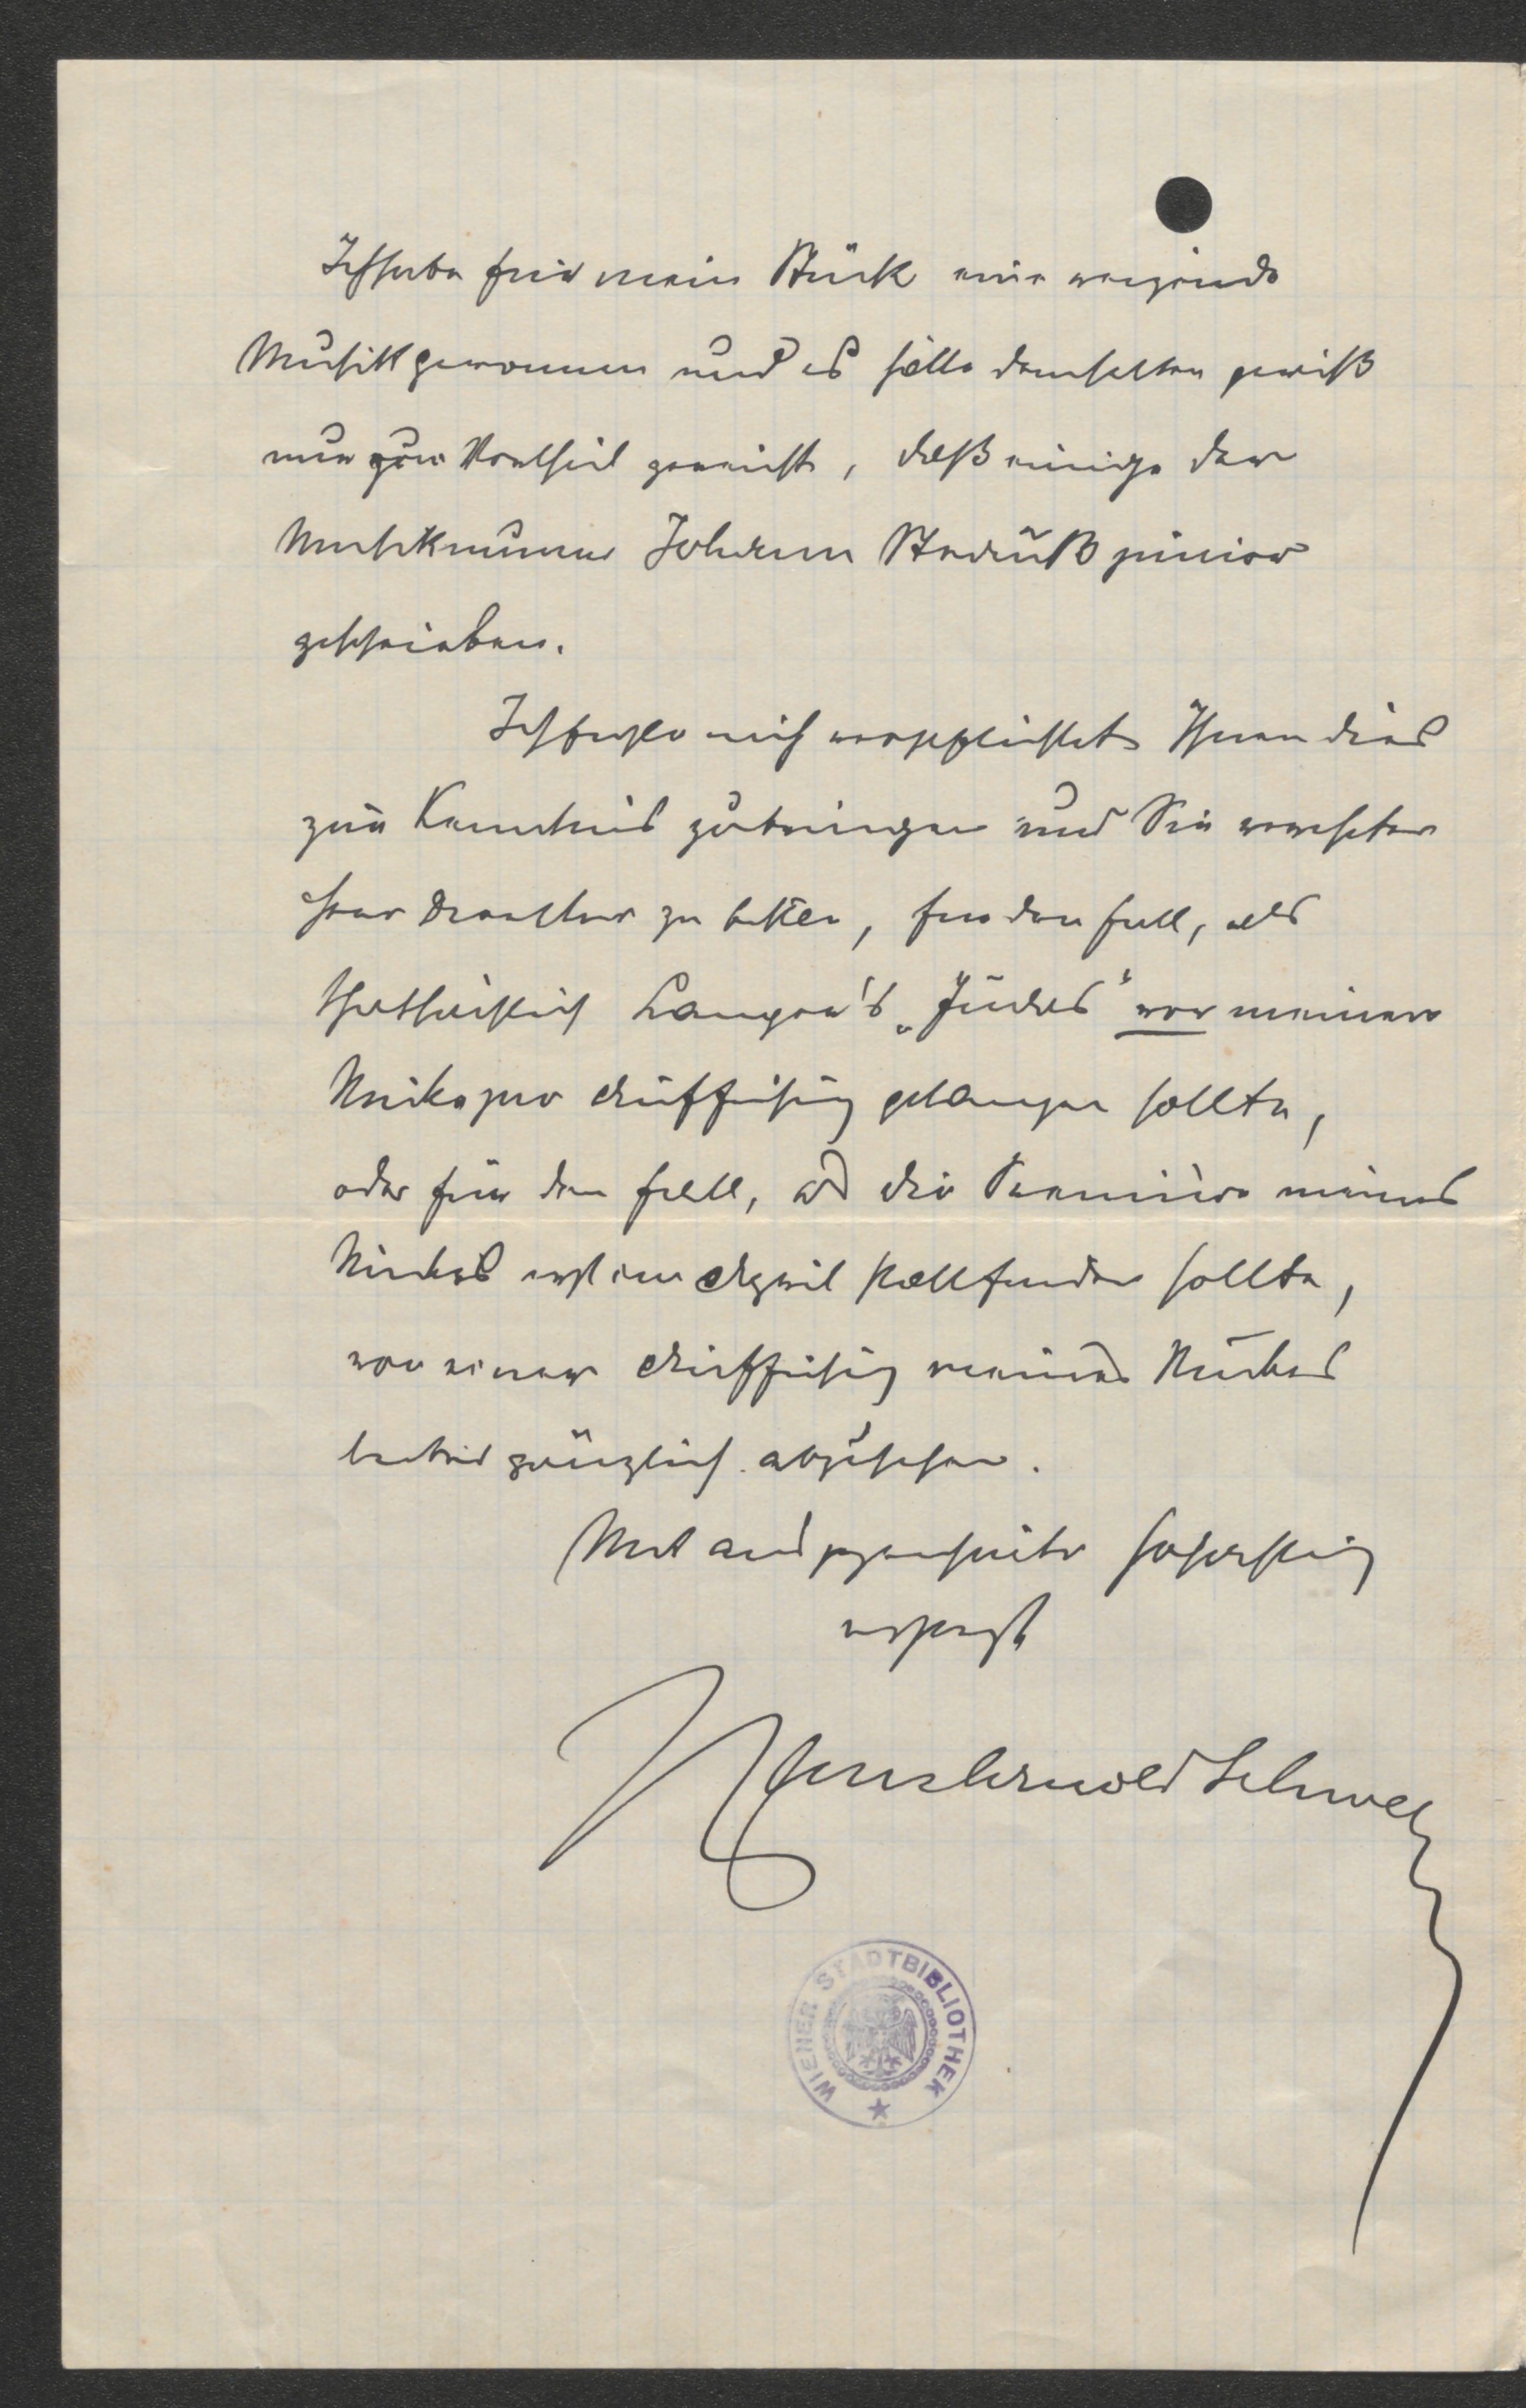 Ich habe für mein Stück eine reizende
Musik gewonnen und es hätte demselben gewiß
nur zum Vortheil gereicht, daß einige der
Musiknummern Johann Strauß junior
geschrieben.
Ich fühle mich verpflichtet Ihnen dies
zur Kenntnis zu bringen und Sie verehrter
Herr Direktor zu bitten, für den Fall, als
thatsächlich Langer's „Judas" vor meinem
Stücke zur Aufführung gelangen sollte,
oder für den Fall, als die Premiere meines
Stückes erst im April stattfinden sollte,
von einer Aufführung meines Stückes
lieber gänzlich abzusehen.
Mit ausgezeichneter Hochachtung
ergebenst
WIENER STADTBIBLIOTHEK